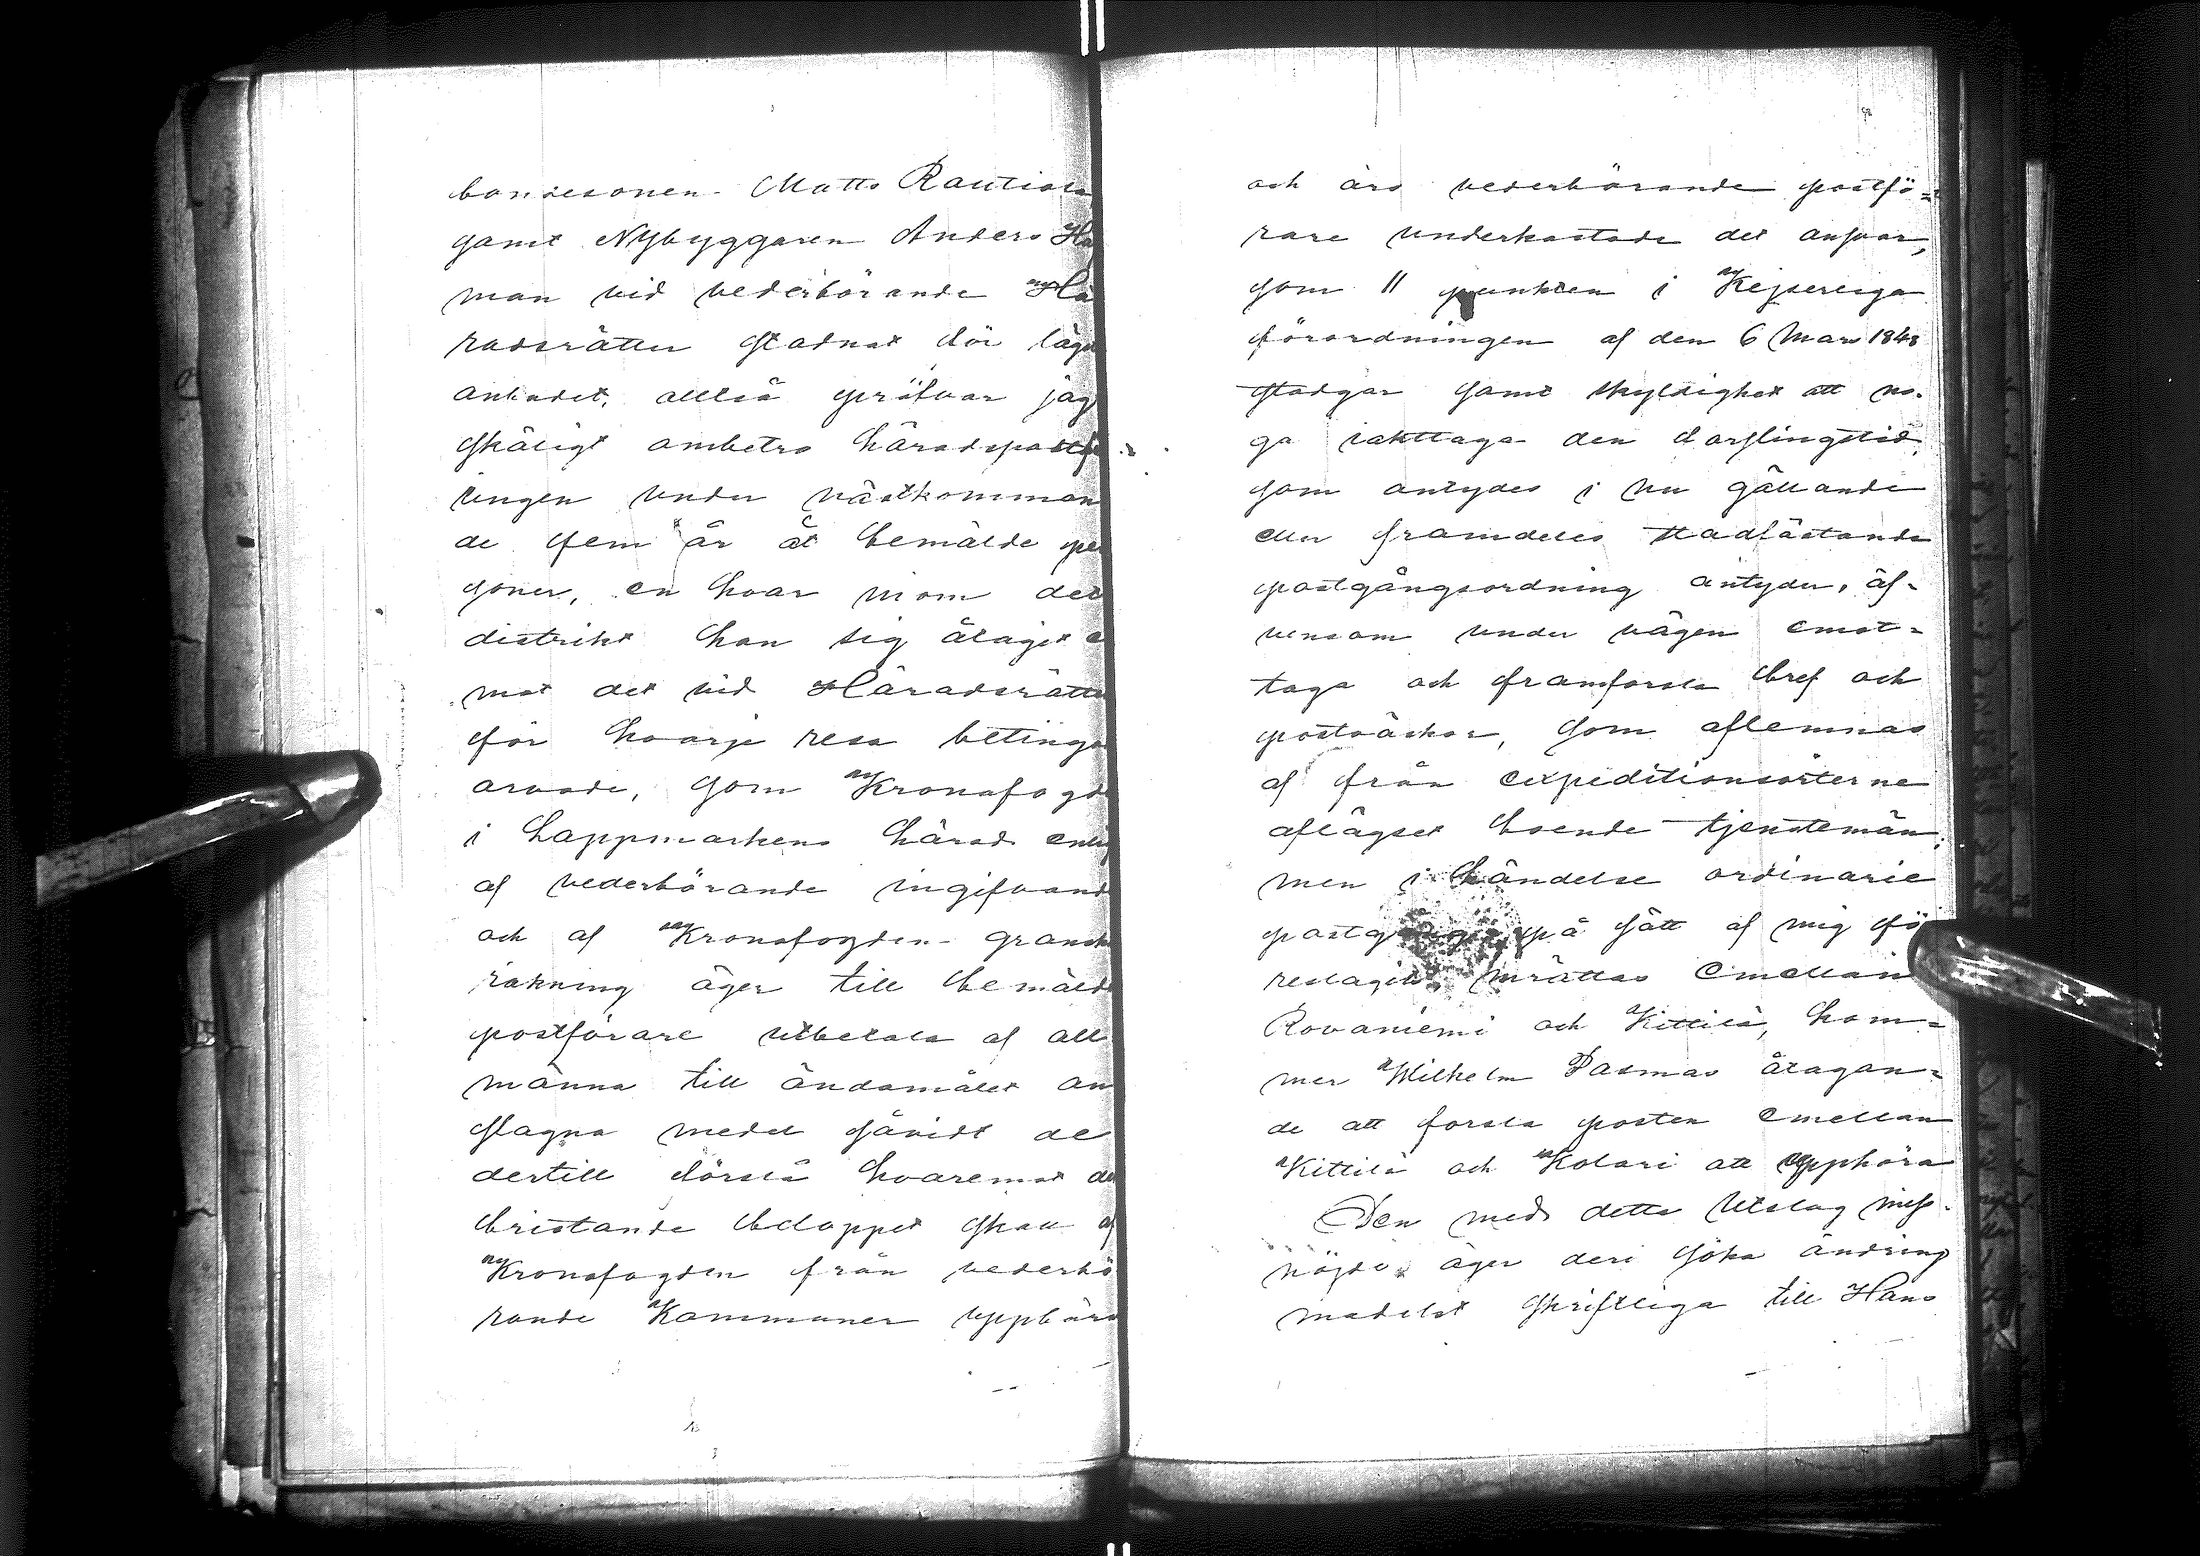 bondesonen Matts Rautiola
samt Nybyggaren Anders Ha
man vid vederbörande Hä
radsrätter stadnat för läge
anbudet, alltså pröfvar jag
skäligt anbetro häradspostfö
ringen under nästkomman
de fem år åt bemälde per
soner, en hvar inom det
distrikt han sig åtagit e
mot det vid Häradsrätte
för hvarje resa betinga
arvode, som Kronofogde
i Lappmarkens härad enlig
af vederbörande ingifvand
och af Kronofogden gransk
räkning äger till bemäld
postförare utbetala af all
männa till ändamålet an
slagna medel såvidt de
dertill förslå hvaremot de
bristande beloppet skall af
Kronofogden från vederbö
rande Kommuner uppbära
och äro vederbörande postfö=
rare underkastade det ansvar,
som 11 punkten i Kejserliga
förordningen af den 6 Mars 1848
stadgar samt skyldighet att no-
ga iakttaga den forslingstid,
som antydes i nu gällande
eller framdeles stadfästande
postgångsordning antyder, äf-
vensom under vägen emot=
taga och framforsla bref och
postväskor, som aflemnas
af från expeditionsorterne
aflägset boende tjenstemän,
men i händelse ordinarie
postgång på sätt af mig fö
reslagits inrättas emellan
Rovaniemi och Kittilä, kom=
mer Wilhelm Pasmas åtagan=
de att forsla posten emellan
Kittilä och Kolari att upphöra
Den med detta Utslag miss-
nöjde äger deri söka ändring
medelst skriftliga till Hans